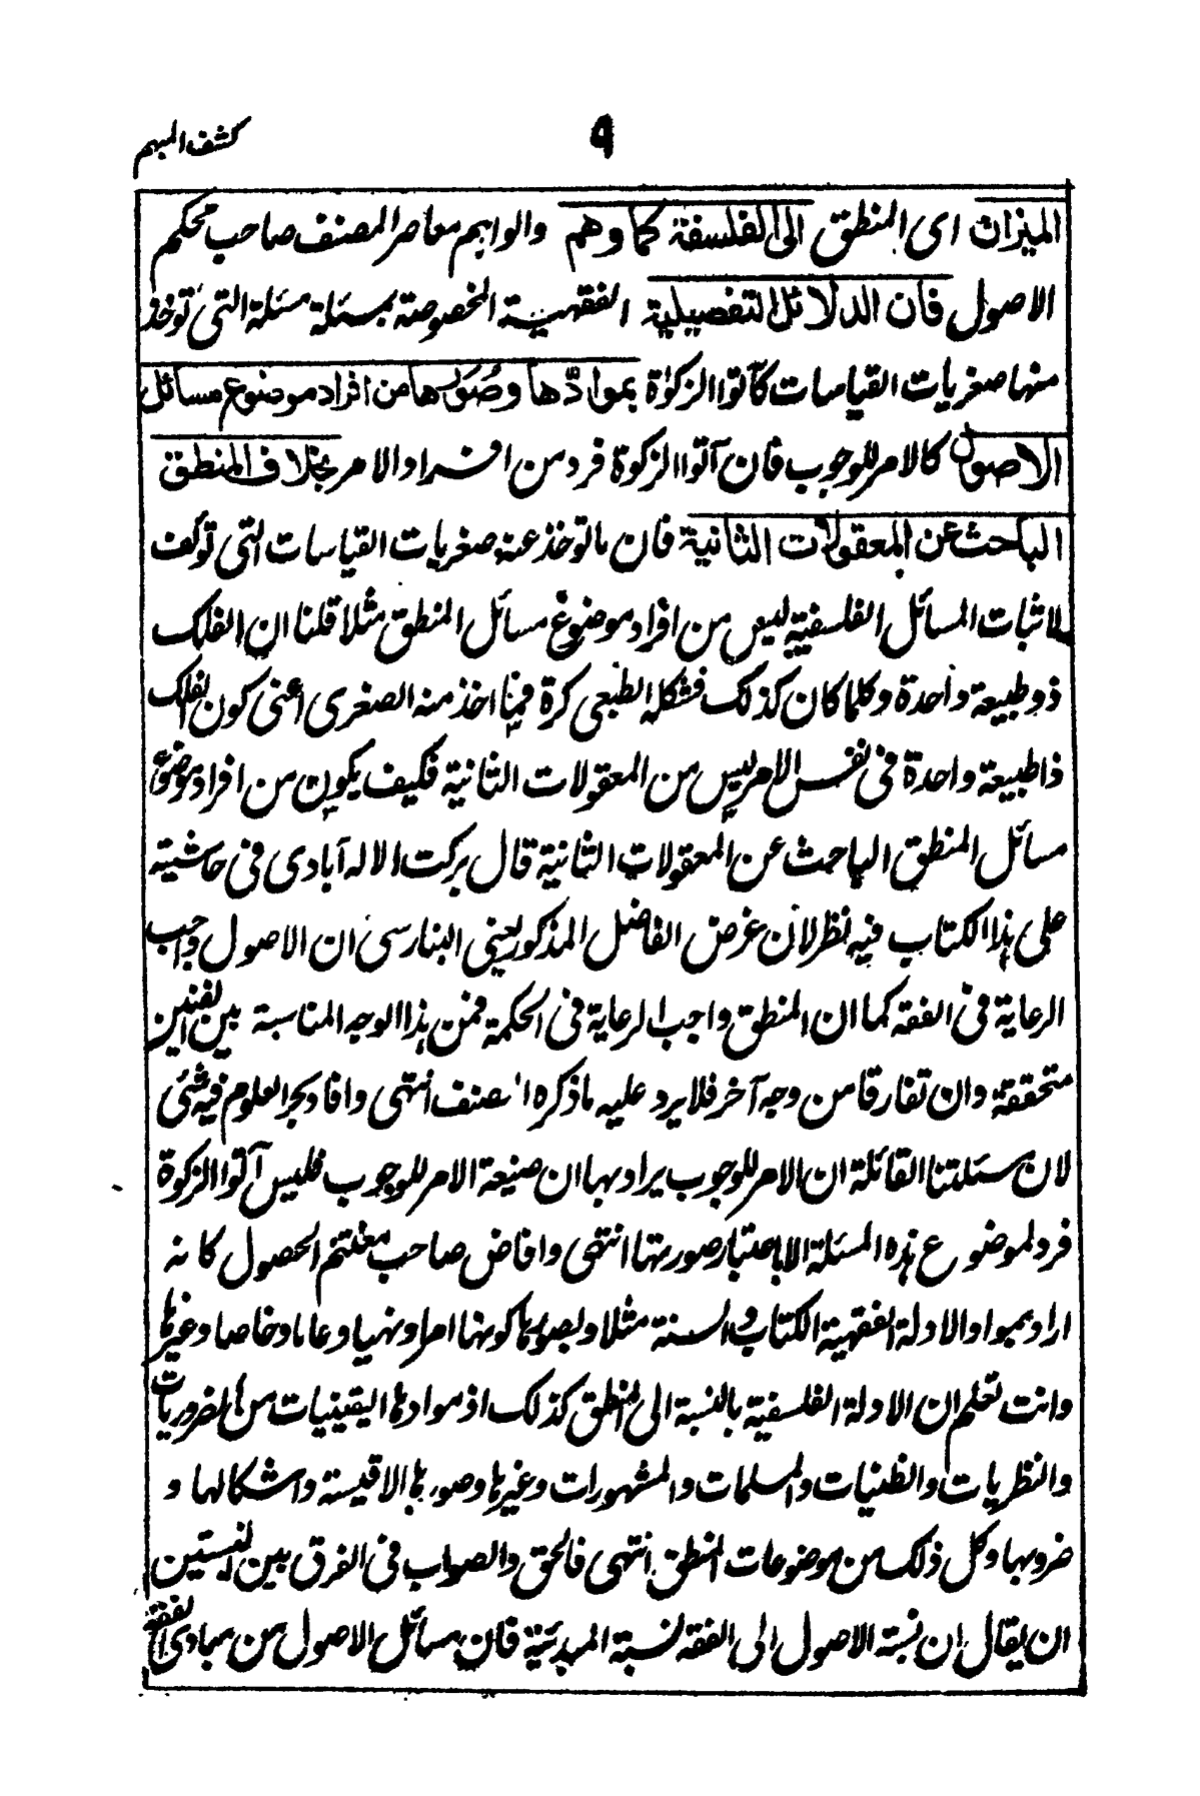 كشف المبهم
٩
الميزان اى المنطق الى الفلسفة كما وهم والواهم معاصر المصنف صاحب محكم
الاصول فان الدلائل التفصيلية الفقهية المخصوصة بمسئلة مسئلة التى تؤخذ
منها صغريات القياسات كآتوا الزكوٰة بموادّها وصُوَرها من افراد موضوع مسائل
الاصول كالامر للوجوب فان آتوا الزكوة فرد من افراد الامر بخلاف المنطق
الباحث عن المعقولات الثانية فان ما توخذ عنه صغريات القياسات التى تؤلف
لاثبات المسائل الفلسفية ليس من افراد موضوع مسائل المنطق مثلا قلنا ان الفلك
ذو طبيعة واحدة وكلما كان كذلك فشكله الطبعى كرة فمما اخذ منه الصغرى اعنى كون الفلك
ذا طبيعة واحدة فى نفس الامر ليس من المعقولات الثانية فكيف يكون من افراد موضوع
مسائل المنطق الباحث عن المعقولات الثانية قال بركت الاله آبادى فى حاشيته
على هذا الكتاب فيه نظر لان غرض الفاضل المذكور يعنى البنارسى ان الاصول واجب
الرعاية فى الفقه كما ان المنطق واجب الرعاية فى الحكمة فمن هذا الوجه المناسبة بين الفنين
متحققة وان تفارقا من وجه آخر فلا يرد عليه ما ذكره المصنف انتهى وافاد بحر العلوم فيه شئ
لان مسئلتنا القائلة ان الامر للوجوب يراد بها ان صيغة الامر للوجوب فليس آتوا الزكوة
فرد لموضوع هذه المسئلة الا باعتبار صورتها انتهى وافاض صاحب مغتنم الحصول كانه
اراد بمواد الادلة الفقهية الكتاب والسنة مثلا وبصورها كونها امرا ونهيا وعاما وخاصا وغيرها
وانت تعلم ان الادلة الفلسفية بالنسبة الى المنطق كذلك اذ موادها اليقينيات من الضروريات
والنظريات والظنيات والمسلمات والمشهورات وغيرها وصورها الاقيسة واشكالها و
ضروبها وكل ذلك من موضوعات المنطق انتهى فالحق والصواب فى الفرق بين النسبتين
ان يقال ان نسبة الاصول الى الفقه نسبة المبدئية فان مسائل الاصول من مبادى الفقه